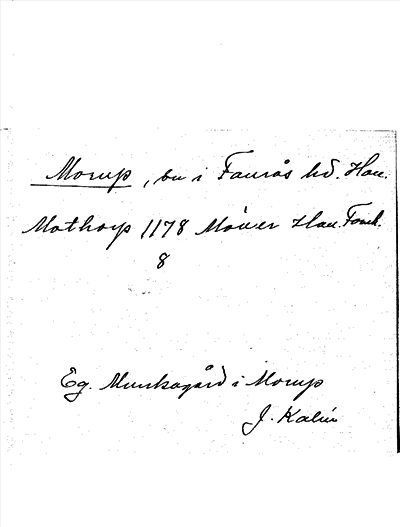 Morup, bu i Faurås hd. Hall.
Mothorp 1178 Möller Hall. Fornh.
8
Eg. Munkagård i Morup
J. Kalén